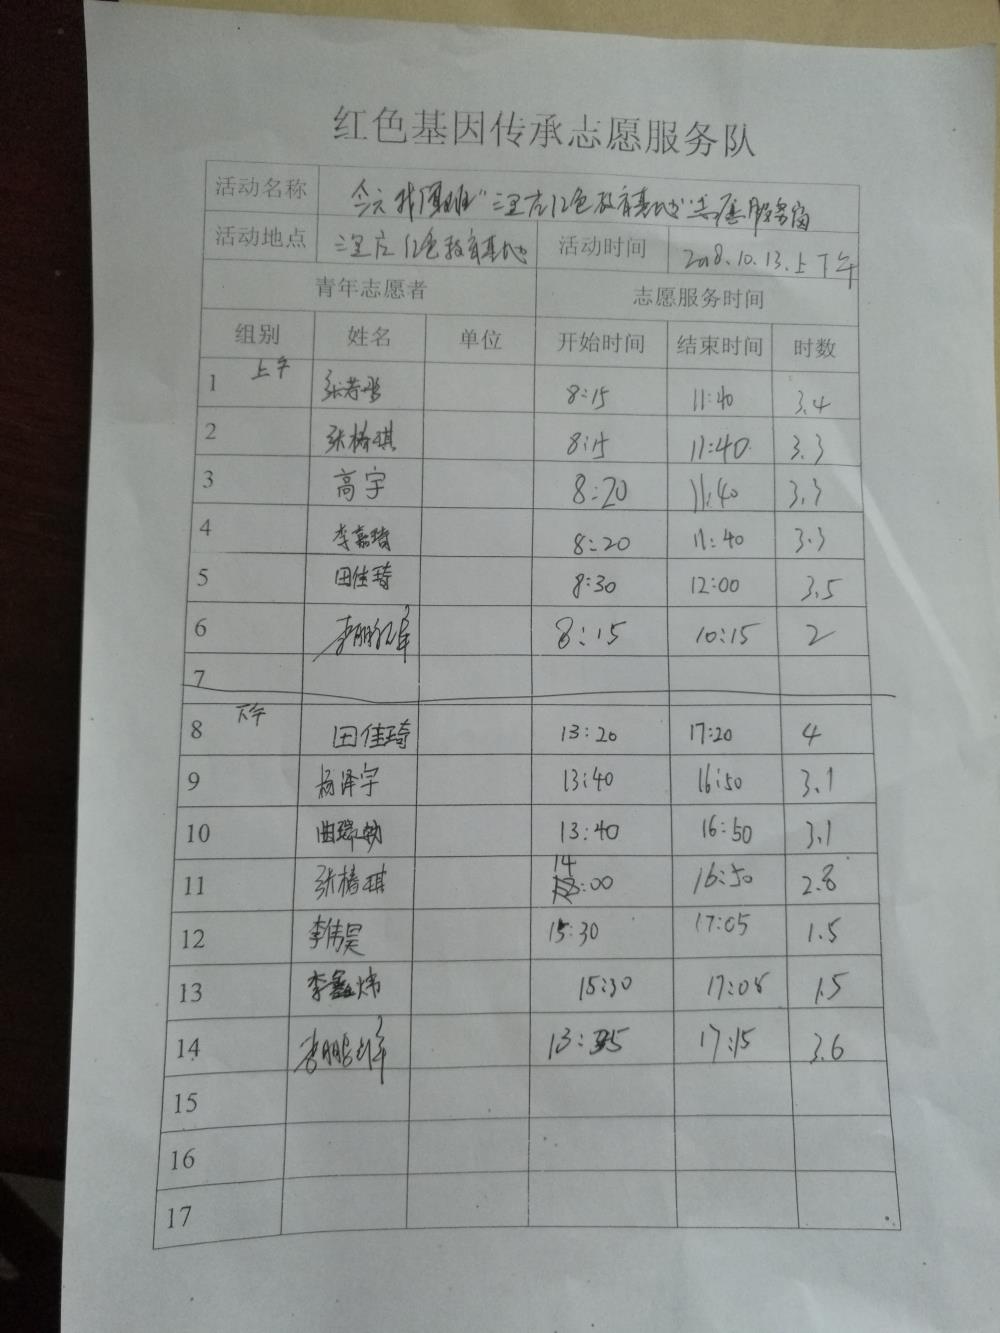 红色基因传承志愿服务队
活动名称 今天我值班"三里庄红色教育基地"志愿服务岗
活动地点 三里庄红色教育基地 活动时间 2018.10.13.上下午
青年志愿者 志愿服务时间
组别 姓名 单位 开始时间 结束时间 时数
上午
1 8:15 11:40 3.4
2 张椿琪 8:15 11:40 3.3
3 高宇 8:20 11:40 3.3
4 李嘉琦 8:20 11:40 3.3
5 田佳琦 8:30 12:00 3.5
6 8:15 10:15 2
7
下午
8 田佳琦 13:20 17:20 4
9 杨泽宇 13:40 16:50 3.1
10 13:40 16:50 3.1
11 张椿琪 14:00 16:50 2.8
12 李伟昊 15:30 17:05 1.5
13 李鑫炜 15:30 17:05 1.5
14 13:35 17:15 3.6
15
16
17